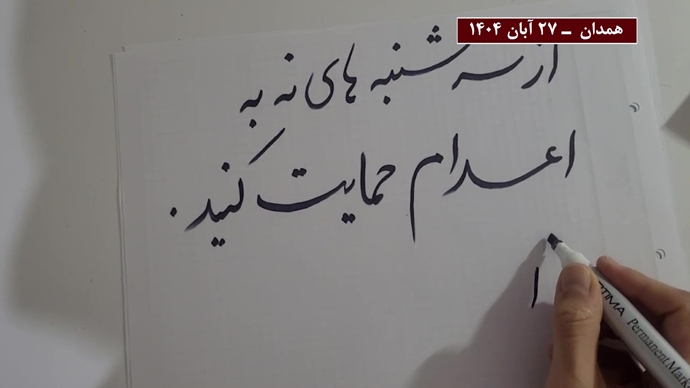 همدان ــ ۲۷ آبان ۱۴۰۴
از سه شنبه های نه به
اعدام حمایت کنید.
ا
OPTIMA Permanent Mark